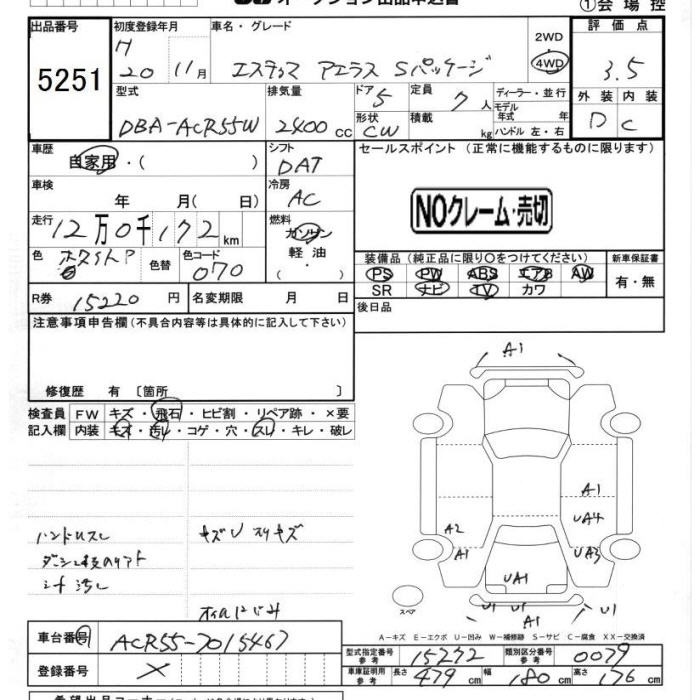 オークション出品申込書
①会場控
出品番号 初度登録年月 車名・グレード 評価点
5251
H 20 11月 エスティマ アエラス Sパッケージ 2WD 4WD 3.5
型式 排気量 ドア 5 定員 7人 ディーラー・並行 外装 内装
DBA-ACR55W 2400cc 形状 CW 積載 kg モデル年式 年 ハンドル 左・右 D C
車歴 自家用・( ) シフト DAT セールスポイント (正常に機能するものに限ります)
車検 年 月( 日) 冷房 AC
NOクレーム・売切
走行 12万0千172km 燃料 ガソリン 軽油 ( )
色 ホワイトP 色替 色コード 070
装備品 (純正品に限り〇をつけてください) 新車保証書
PS PW ABS エアB AW 有・無
SR ナビ TV カワ
R券 15220円 名変期限 月 日 後日品
注意事項申告欄(不具合内容等は具体的に記入して下さい)
修復歴 有 〔箇所 〕
検査員 FW キズ・飛石・ヒビ割・リペア跡・×要
記入欄 内装 キズ・汚レ・コゲ・穴・スレ・キレ・破レ
A1
A1
UA4
A2
A1 UA3
UA1
U1 U1 U1
A1
スペア
ハンドルスレ キズU スリキズ
シート汚レ
オイルにじみ
A-キズ E-エクボ U-凹み W-補修跡 S-サビ C-腐食 XX-交換済
車台番号 ACR55-7015467
登録番号 ×
型式指定番号 参考 15272 類別区分番号 参考 0079
車庫証明用 参考 長さ 479cm 幅 180cm 高さ 176cm